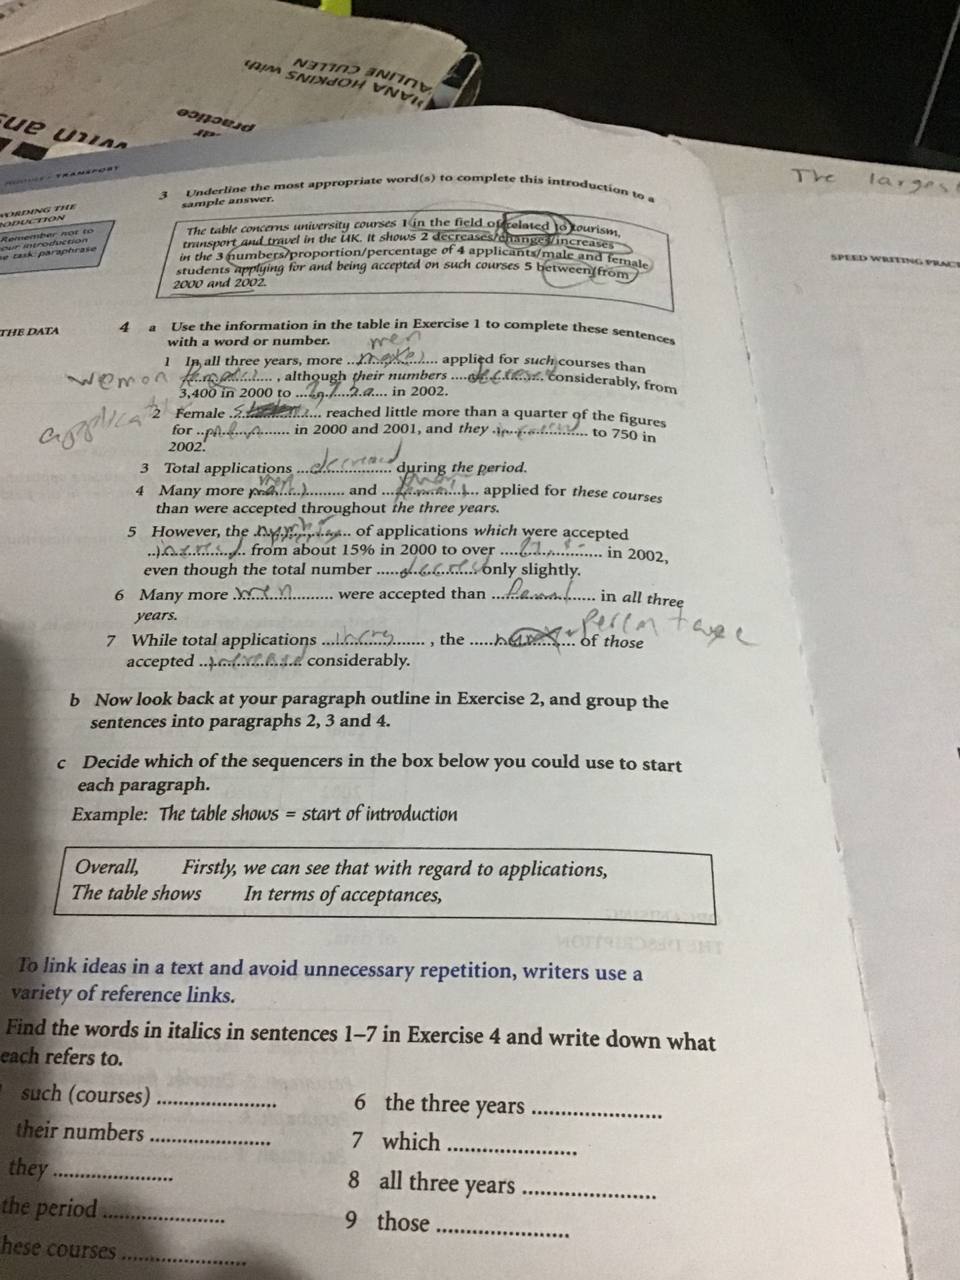 HANA HOPKINS with
AULINE CULLEN
practice
with ans
TRANSPORT
WORDING THE
Remember not to
introduction
task: paraphrase
3 Underline the most appropriate word(s) to complete this introduction to a
sample answer.
The table concerns university courses 1 in the field of/related to tourism,
transport and travel in the UK. It shows 2 decreases/changes/increases
in the 3 numbers/proportion/percentage of 4 applicants/male and female
students applying for and being accepted on such courses 5 between/from
2000 and 2002.
The larges
SPEED WRITING PRAC
THE DATA
4 a Use the information in the table in Exercise 1 to complete these sentences
with a word or number.
men
1 In all three years, more .............. applied for such courses than
wemon .............. , although their numbers .............. considerably, from
3,400 in 2000 to .............. in 2002.
2 Female .............. reached little more than a quarter of the figures
for .............. in 2000 and 2001, and they .............. to 750 in
2002.
3 Total applications .............. during the period.
4 Many more .............. and .............. applied for these courses
than were accepted throughout the three years.
5 However, the .............. of applications which were accepted
.............. from about 15% in 2000 to over .............. in 2002,
even though the total number .............. only slightly.
6 Many more men were accepted than .............. in all three
years.
7 While total applications .............. , the .............. of those
accepted .............. considerably.
b Now look back at your paragraph outline in Exercise 2, and group the
sentences into paragraphs 2, 3 and 4.
c Decide which of the sequencers in the box below you could use to start
each paragraph.
Example: The table shows = start of introduction
Overall, Firstly, we can see that with regard to applications,
The table shows In terms of acceptances,
To link ideas in a text and avoid unnecessary repetition, writers use a
variety of reference links.
Find the words in italics in sentences 1–7 in Exercise 4 and write down what
each refers to.
such (courses) ......................
their numbers ......................
they ......................
the period ......................
hese courses ......................
6 the three years ......................
7 which ......................
8 all three years ......................
9 those ......................